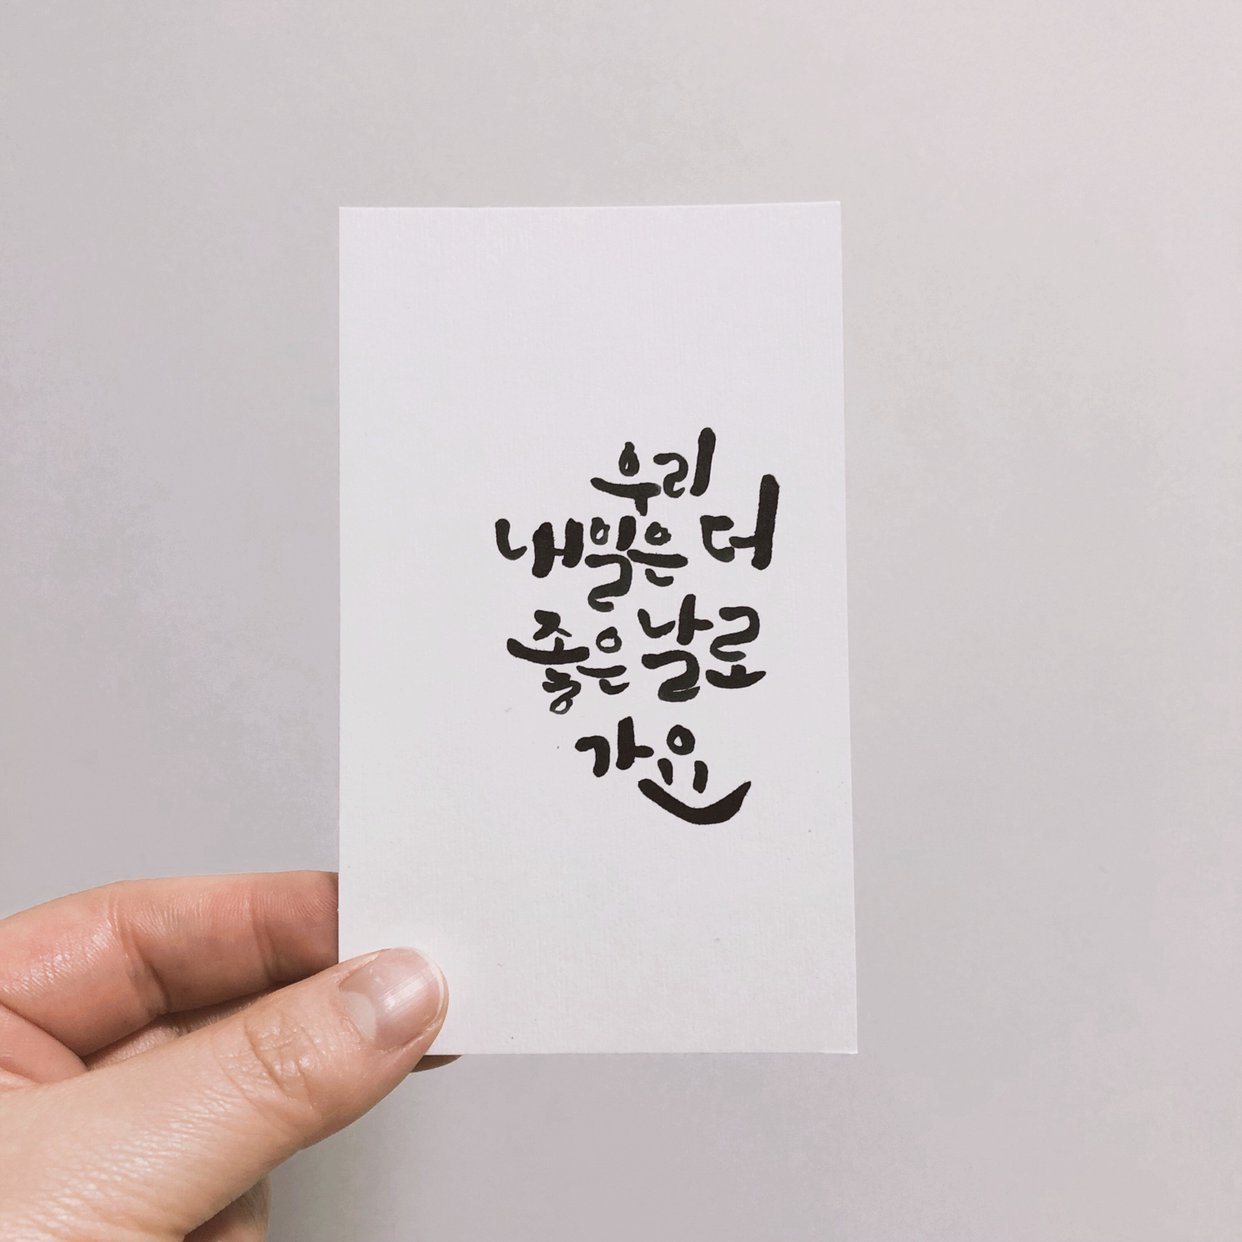 우리
내일은 더
좋은 날로
가요